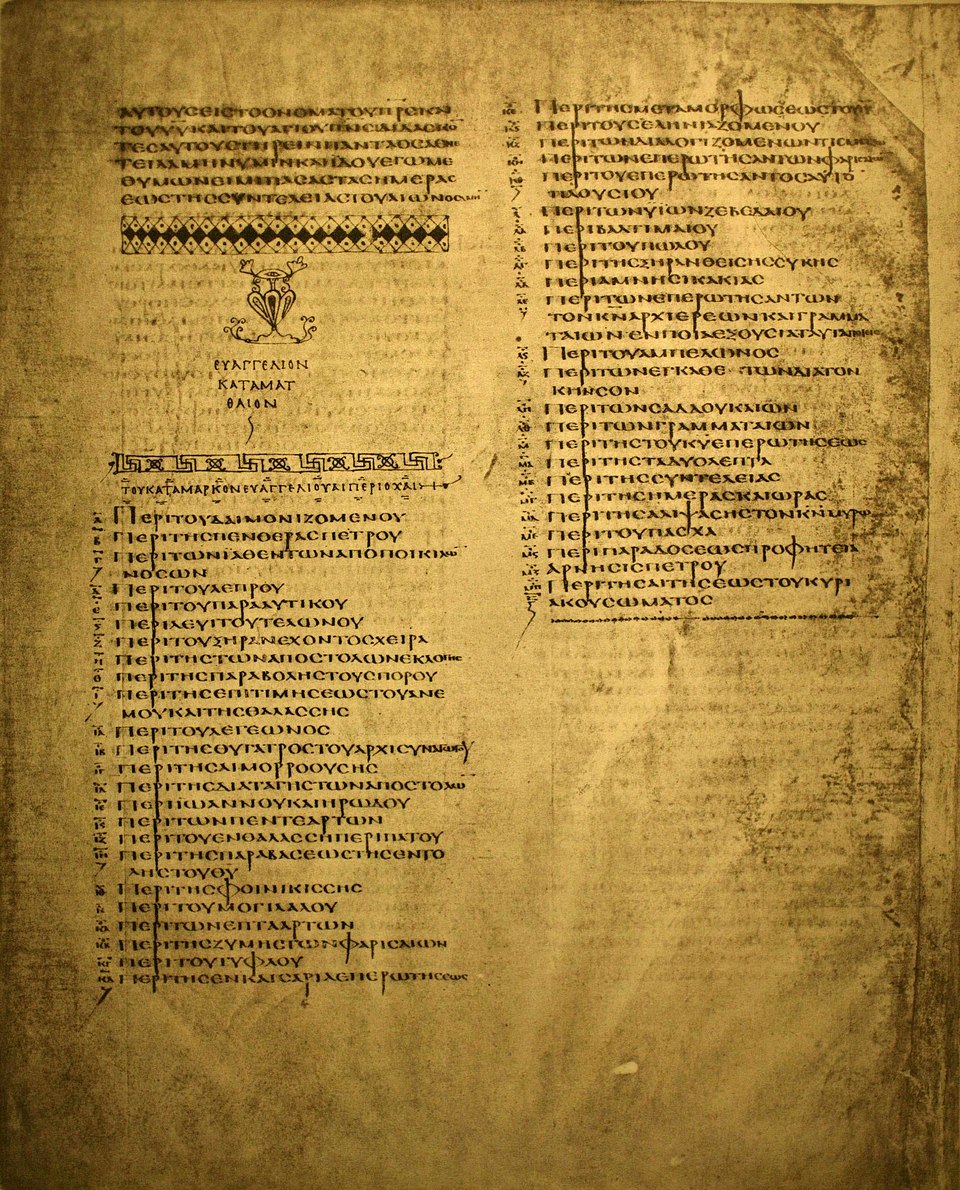 ΑΥΤΟΥϹΕΙϹΤΟΟΝΟΜΑΤΟΥΠΡϹΚΑΙ
ΤΟΥΥΥΚΑΙΤΟΥΑΓΙΟΥΠΝϹΔΙΔΑϹΚΟ
ΤΕϹΑΥΤΟΥϹΤΗΡΕΙΝΠΑΝΤΑΟϹΑΕΝ
ΤΕΙΛΑΜΗΝΥΜΙΝΚΑΙΙΔΟΥΕΓΩΜΕ
ΘΥΜΩΝΕΙΜΙΠΑϹΑϹΤΑϹΗΜΕΡΑϹ
ΕΩϹΤΗϹϹΥΝΤΕΛΕΙΑϹΤΟΥΑΙΩΝΟϹΑΜΗΝ
ΕΥΑΓΓΕΛΙΟΝ
ΚΑΤΑΜΑΤ
ΘΑΙΟΝ
ΤΟΥΚΑΤΑΜΑΡΚΟΝΕΥΑΓΓΕΛΙΟΥΑΙΠΕΡΙΟΧΑΙ
Α ΠΕΡΙΤΟΥΔΑΙΜΟΝΙΖΟΜΕΝΟΥ
Β ΠΕΡΙΤΗϹΠΕΝΘΕΡΑϹΠΕΤΡΟΥ
Γ ΠΕΡΙΤΩΝΙΑΘΕΝΤΩΝΑΠΟΠΟΙΚΙΛΩΝ
ΝΟϹΩΝ
Δ ΠΕΡΙΤΟΥΛΕΠΡΟΥ
Ε ΠΕΡΙΤΟΥΠΑΡΑΛΥΤΙΚΟΥ
Ϛ ΠΕΡΙΛΕΥΙΤΟΥΤΕΛΩΝΟΥ
Ζ ΠΕΡΙΤΟΥΞΗΡΑΝΕΧΟΝΤΟϹΧΕΙΡΑ
Η ΠΕΡΙΤΗϹΤΩΝΑΠΟϹΤΟΛΩΝΕΚΛΟΓΗϹ
Θ ΠΕΡΙΤΗϹΠΑΡΑΒΟΛΗϹΤΟΥϹΠΟΡΟΥ
Ι ΠΕΡΙΤΗϹΕΠΙΤΙΜΗϹΕΩϹΤΟΥΑΝΕ
ΜΟΥΚΑΙΤΗϹΘΑΛΑϹϹΗϹ
ΙΑ ΠΕΡΙΤΟΥΛΕΓΕΩΝΟϹ
ΙΒ ΠΕΡΙΤΗϹΘΥΓΑΤΡΟϹΤΟΥΑΡΧΙϹΥΝΑΓΩΓΟΥ
ΙΓ ΠΕΡΙΤΗϹΑΙΜΟΡΡΟΟΥϹΗϹ
ΙΔ ΠΕΡΙΤΗϹΔΙΑΤΑΓΗϹΤΩΝΑΠΟϹΤΟΛΩ
ΙΕ ΠΕΡΙΙΩΑΝΝΟΥΚΑΙΗΡΩΔΟΥ
ΙϚ ΠΕΡΙΤΩΝΠΕΝΤΕΑΡΤΩΝ
ΙΖ ΠΕΡΙΤΟΥΕΝΘΑΛΑϹϹΗΠΕΡΙΠΑΤΟΥ
ΙΗ ΠΕΡΙΤΗϹΠΑΡΑΒΑϹΕΩϹΤΗϹΕΝΤΟ
ΛΗϹΤΟΥΘΥ
ΙΘ ΠΕΡΙΤΗϹΦΟΙΝΙΚΙϹϹΗϹ
Κ ΠΕΡΙΤΟΥΜΟΓΙΛΑΛΟΥ
ΚΑ ΠΕΡΙΤΩΝΕΠΤΑΑΡΤΩΝ
ΚΒ ΠΕΡΙΤΗϹΖΥΜΗϹΤΩΝΦΑΡΙϹΑΙΩΝ
ΚΓ ΠΕΡΙΤΟΥΤΥΦΛΟΥ
ΚΔ ΠΕΡΙΤΗϹΕΝΚΑΙϹΑΡΙΑΕΠΕΡΩΤΗϹΕΩϹ
ΚΕ ΠΕΡΙΤΗϹΜΕΤΑΜΟΡΦΩϹΕΩϹΤΟΥΙΥ
ΚϚ ΠΕΡΙΤΟΥϹΕΛΗΝΙΑΖΟΜΕΝΟΥ
ΚΖ ΠΕΡΙΤΩΝΔΙΑΛΟΓΙΖΟΜΕΝΩΝΤΙϹ
ΚΗ ΠΕΡΙΤΩΝΕΠΕΡΩΤΗϹΑΝΤΩΝΦΑΡΙϹΑΙΩΝ
ΚΘ ΠΕΡΙΤΟΥΕΠΕΡΩΤΗϹΑΝΤΟϹΑΥΤΟ
ΠΛΟΥϹΙΟΥ
Λ ΠΕΡΙΤΩΝΥΙΩΝΖΕΒΕΔΑΙΟΥ
ΛΑ ΠΕΡΙΒΑΡΤΙΜΑΙΟΥ
ΛΒ ΠΕΡΙΤΟΥΠΩΛΟΥ
ΛΓ ΠΕΡΙΤΗϹΞΗΡΑΝΘΕΙϹΗϹϹΥΚΗϹ
ΛΔ ΠΕΡΙΑΜΝΗϹΙΚΑΚΙΑϹ
ΛΕ ΠΕΡΙΤΩΝΕΠΕΡΩΤΗϹΑΝΤΩΝ
ΤΟΝΚΝΑΡΧΙΕΡΕΩΝΚΑΙΓΡΑΜΜΑ
ΤΑΙΩΝΕΝΠΟΙΑΕΞΟΥϹΙΑΤΑΥΤΑ
ΛϚ ΠΕΡΙΤΟΥΑΜΠΕΛΩΝΟϹ
ΛΖ ΠΕΡΙΤΩΝΕΓΚΑΘΕΤΩΝΔΙΑΤΟΝ
ΚΗΝϹΟΝ
ΛΗ ΠΕΡΙΤΩΝϹΑΔΔΟΥΚΑΙΩΝ
ΛΘ ΠΕΡΙΤΩΝΓΡΑΜΜΑΤΑΙΩΝ
Μ ΠΕΡΙΤΗϹΤΟΥΚΥΕΠΕΡΩΤΗϹΕΩϹ
ΜΑ ΠΕΡΙΤΗϹΤΑΔΥΟΛΕΠΤΑ
ΜΒ ΠΕΡΙΤΗϹϹΥΝΤΕΛΕΙΑϹ
ΜΓ ΠΕΡΙΤΗϹΗΜΕΡΑϹΚΑΙΩΡΑϹ
ΜΔ ΠΕΡΙΤΗϹΑΛΙΨΑϹΗϹΤΟΝΚΝΜΥΡΩ
ΜΕ ΠΕΡΙΤΟΥΠΑϹΧΑ
ΜϚ ΠΕΡΙΠΑΡΑΔΟϹΕΩϹΠΡΟΦΗΤΕΙΑ
ΑΡΝΗϹΙϹΠΕΤΡΟΥ
ΜΗ ΠΕΡΙΤΗϹΑΙΤΗϹΕΩϹΤΟΥΚΥΡΙ
ΑΚΟΥϹΩΜΑΤΟϹ